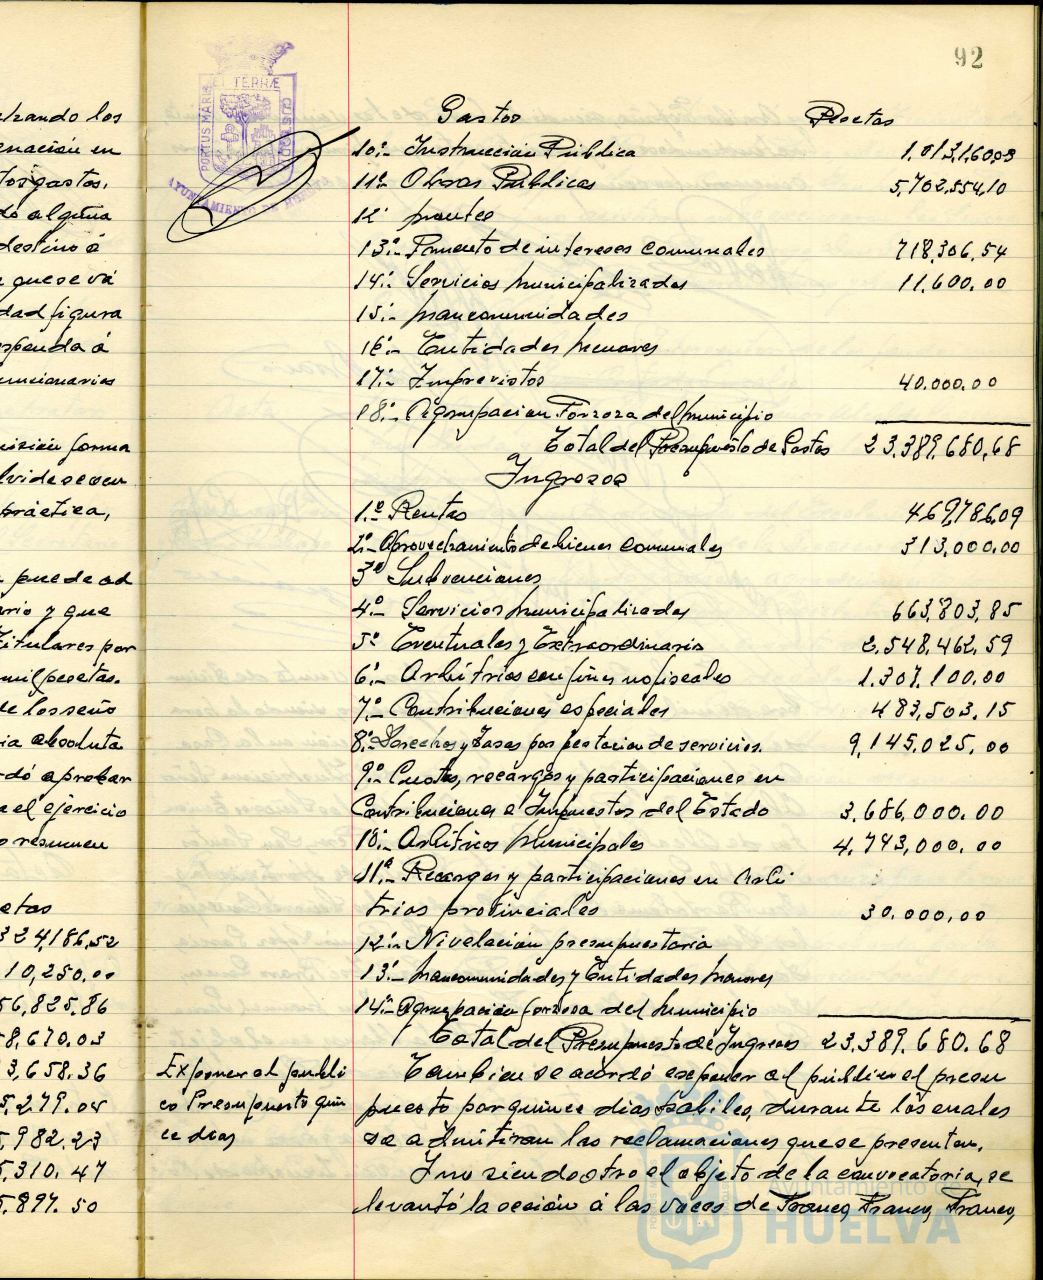 92
PORTUS MARIS ET TERRÆ CUSTODIA
AYUNTAMIENTO DE
hando los
enación en
tos gastos.
do alguna
destino á
quese vá
dad figura
sponda á
uncionarios
misión forma
práctica,
puede ad
ario y que
Titulares por
mil pesetas.
de los seño
ia absoluta
rdó aprobar
a el ejercicio
o resumen
etas
324,186,52
10,250.00
56,825.86
8,670.03
3,658.36
5,279.04
5,982.23
5,310.47
5.897.50
Gastos Pesetas
10º.- Instrucción Pública 1,013,160,03
11º.- Obras Públicas 5,702,554,10
12º montes
13º.- Fomento de intereses comunales 718,306,54
14º.- Servicios municipalizados 11,600.00
15º.- mancomunidades
16º.- Entidades menores
17º.- Imprevistos 40.000.00
18º.- Agrupacion Forzoza del municipio
Total del Presupuesto de Gastos 23,389,680,68
Ingresos
1º.- Rentas 469,786,09
2º.- Aprovechamiento de bienes comunales 313,000.00
3º Subvenciones
4º.- Servicios municipalizados 663,803,85
5º Eventuales y Extraordinario 2.548,462.59
6º.- Arbitrios con fines no fiscales 1.307.100.00
7º.- Contribuciones especiales 483,503.15
8º.- Derechos y Tasas por prestacion de servicios. 9,145.025.00
9º.- Cuotas, recargos y participaciones en
Contribuciones e Impuestos del Estado 3,686,000.00
10º.- Arbitrios municipales 4,743,000.00
11º.- Recargos y participaciones en Arbi
trios provinciales 30.000,00
12º.- Nivelación presupuestaria
13º.- mancomunidades y Entidades menores
14º.- Agrupación forzosa del municipio
Total del Presupuesto de Ingresos 23.389.680.68
Exponer al públi
co Presupuesto quin
ce dias
Tambien se acordó exponer al público el presu
puesto por quince dias habiles, durante los cuales
se admitiran las reclamaciones que se presenten.
Y no siendo otro el objeto de la convocatoria, se
levantó la seción á las voces de Franco, Franco, Franco,
Ayuntamiento de
HUELVA